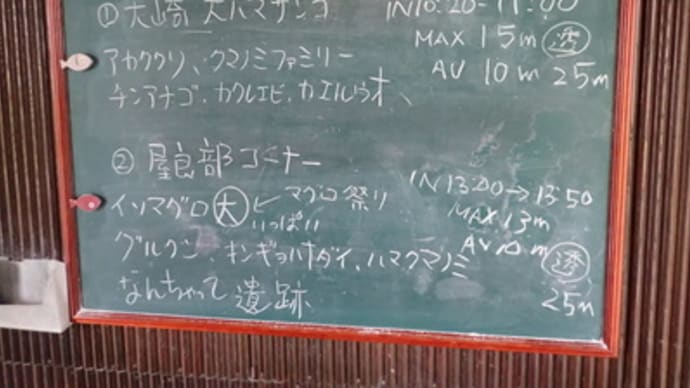 ① 大崎 大ハマサンゴ IN 10:20-11:00
MAX 15m 透
アカククリ、クマノミファミリー AV 10m 25m
チンアナゴ、カクレエビ、カエルウオ、
② 屋良部コーナー
IN 13:00→13:50
イソマグロ 大 いっぱい マグロ祭り MAX 13m
グルクン、キンギョハナダイ、ハマクマノミ AV 10m 透
なんちゃって遺跡 25m